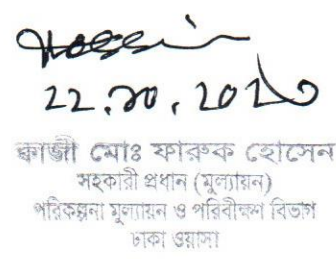 Hossain
22.10.2020
কাজী মোঃ ফারুক হোসেন
সহকারী প্রধান (মূল্যায়ন)
পরিকল্পনা মূল্যায়ন ও পরিবীক্ষণ বিভাগ
ঢাকা ওয়াসা